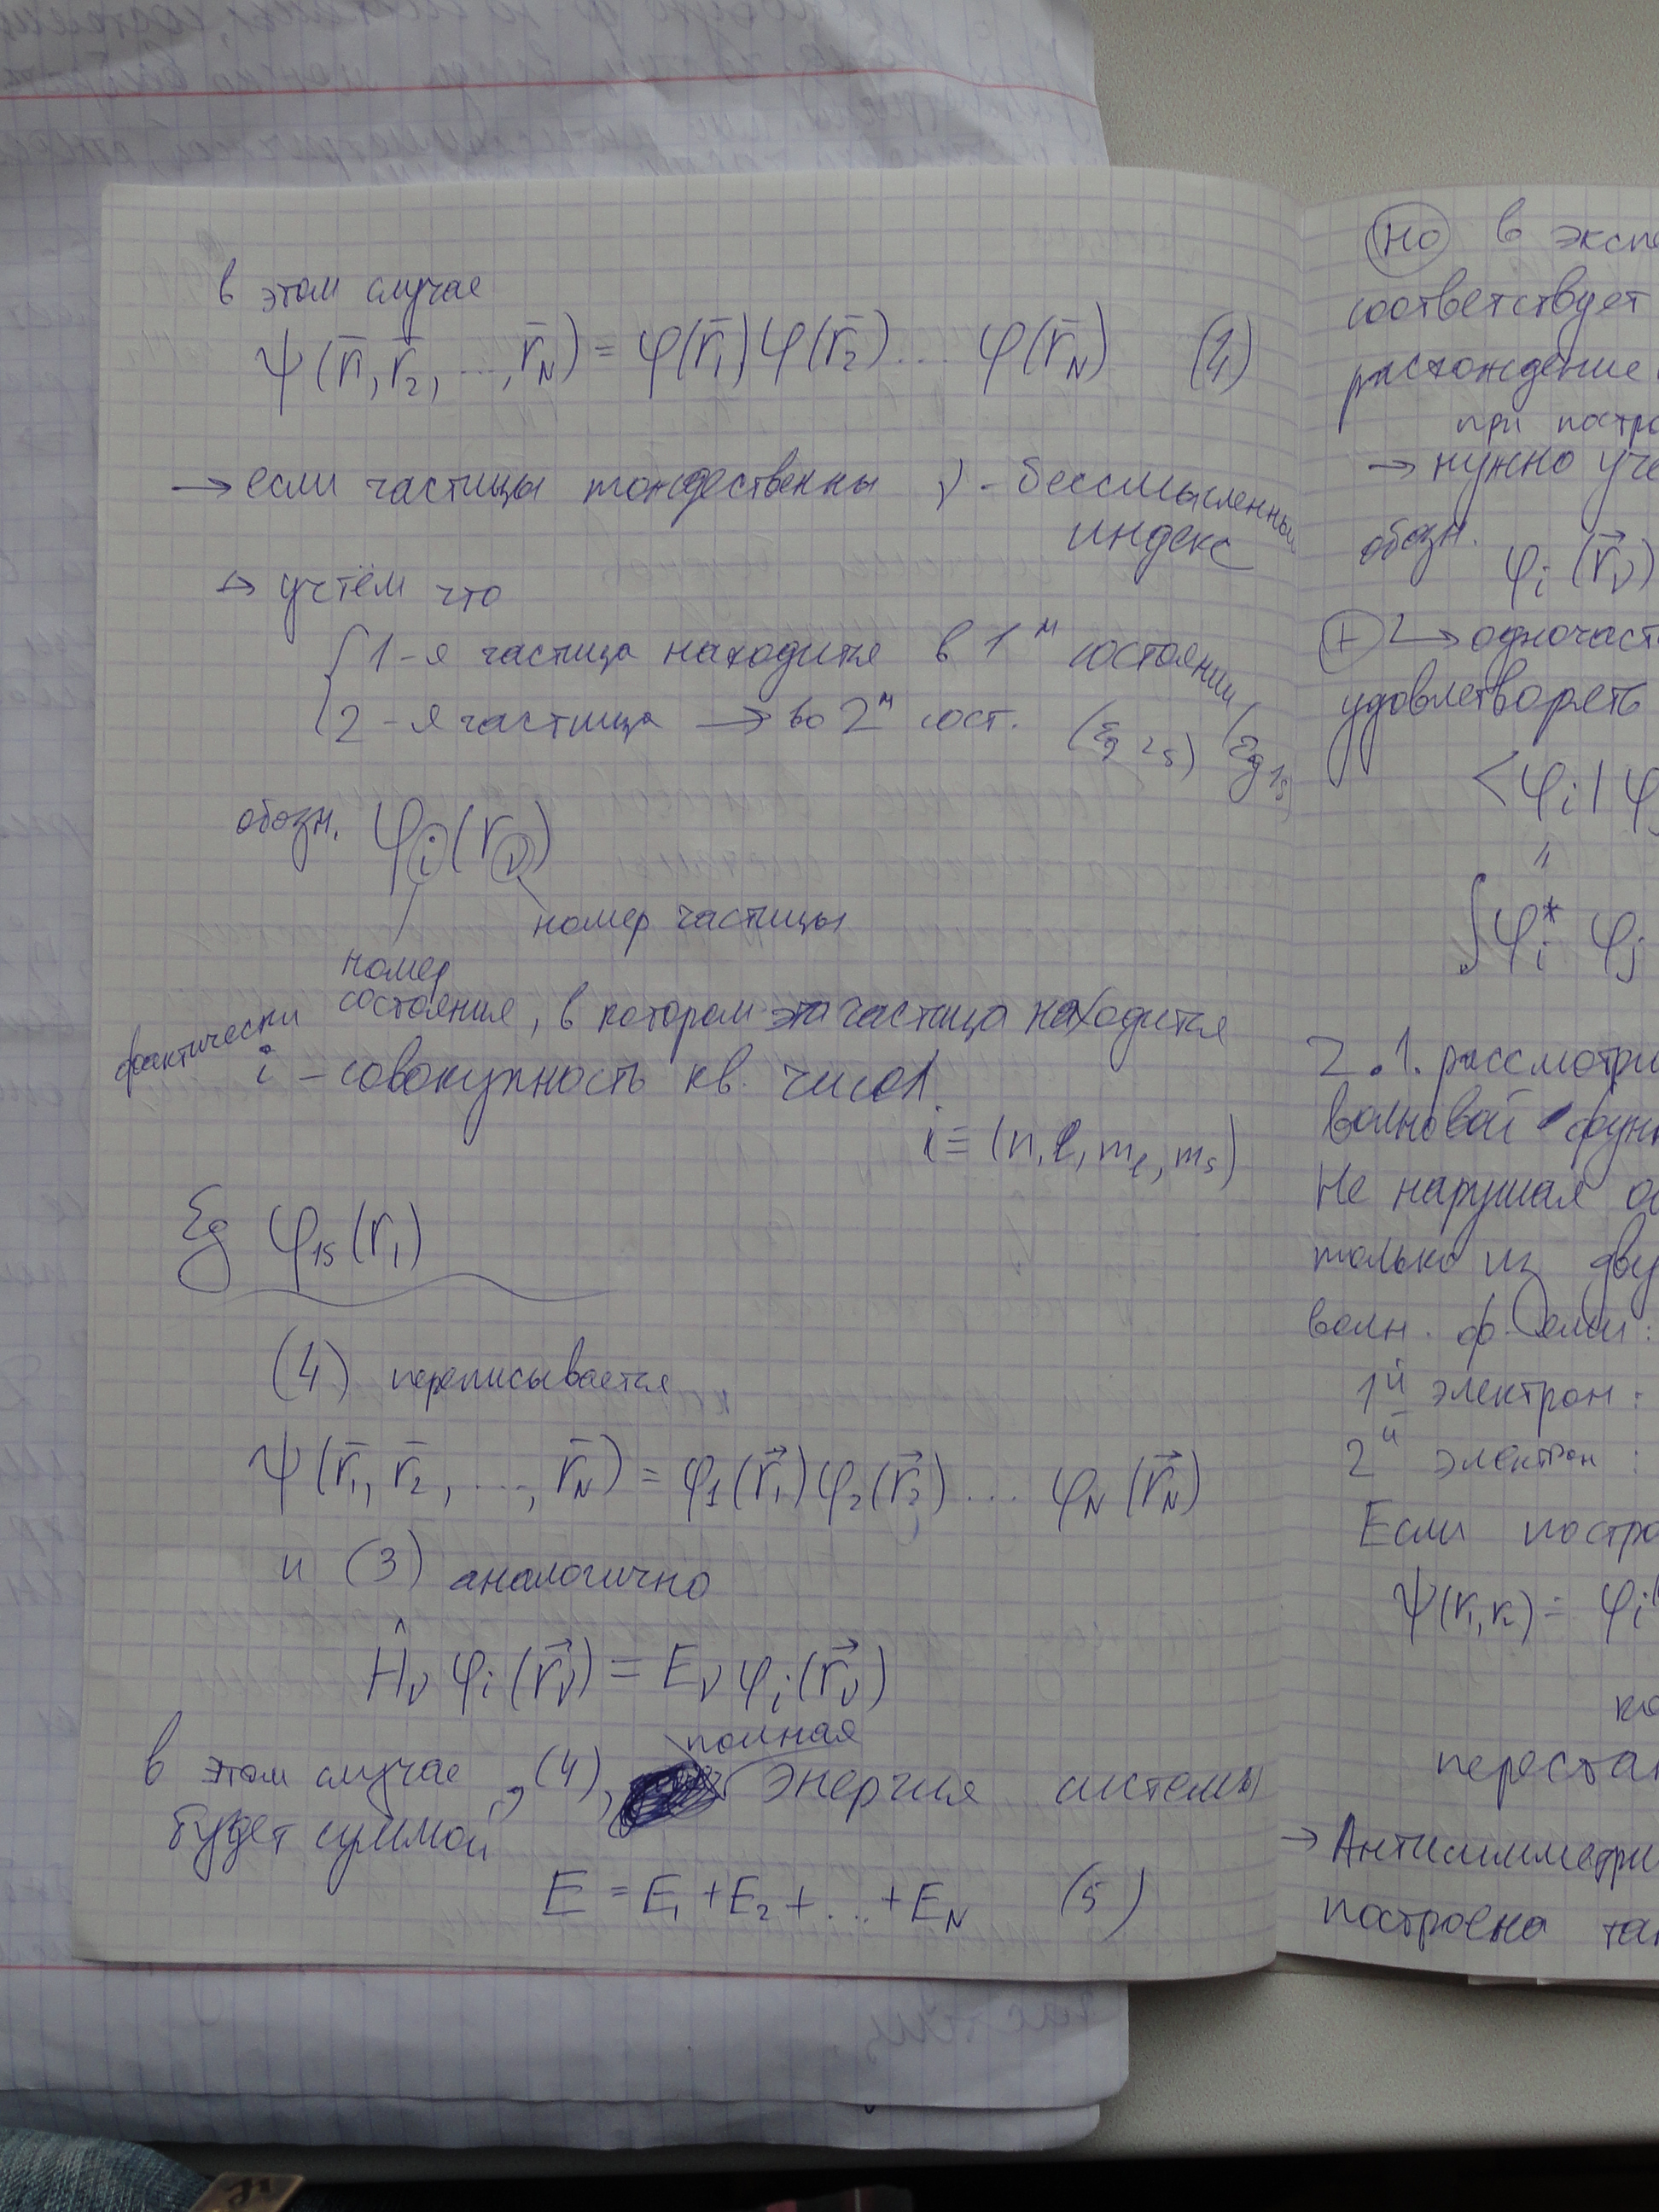 в этом случае
ψ(r̄₁, r̄₂, ..., r̄_N) = φ(r̄₁) φ(r̄₂) ... φ(r̄_N) (4)
→ если частицы тождественны ν - бессмысленный
индекс
→ учтём что
{ 1-я частица находится в 1м состоянии (Eg 1s)
2-я частица → во 2м сост. (Eg 2s)
обозн. φ_i(r_ν)
номер частицы
номер
состояния, в котором эта частица находится
фактически i - совокупность кв. чисел
i ≡ (n, l, m_l, m_s)
Eg φ_1s(r₁)
(4) переписывается
ψ(r̄₁, r̄₂, ..., r̄_N) = φ₁(r⃗₁) φ₂(r⃗₂) ... φ_N(r⃗_N)
и (3) аналогично
Ĥ_ν φ_i(r⃗_ν) = E_ν φ_i(r⃗_ν)
полная
в этом случае, (4), энергия системы
будет суммой
E = E₁ + E₂ + ... + E_N (5)
Но в эксп
соответствует
расхождение
при постро
→ нужно уче
обозн. φ_i(r⃗_ν)
+ → одночаст
удовлетворять
<φ_i | φ
"
∫φ_i* φ_j
2.1. рассмотри
волновой функ
Не нарушая о
только из дву
волн. ф.
1й электрон:
2й электрон:
Если постро
ψ(r₁, r₂) = φ_i(
ко
переста
→ Антисимметри
построена так